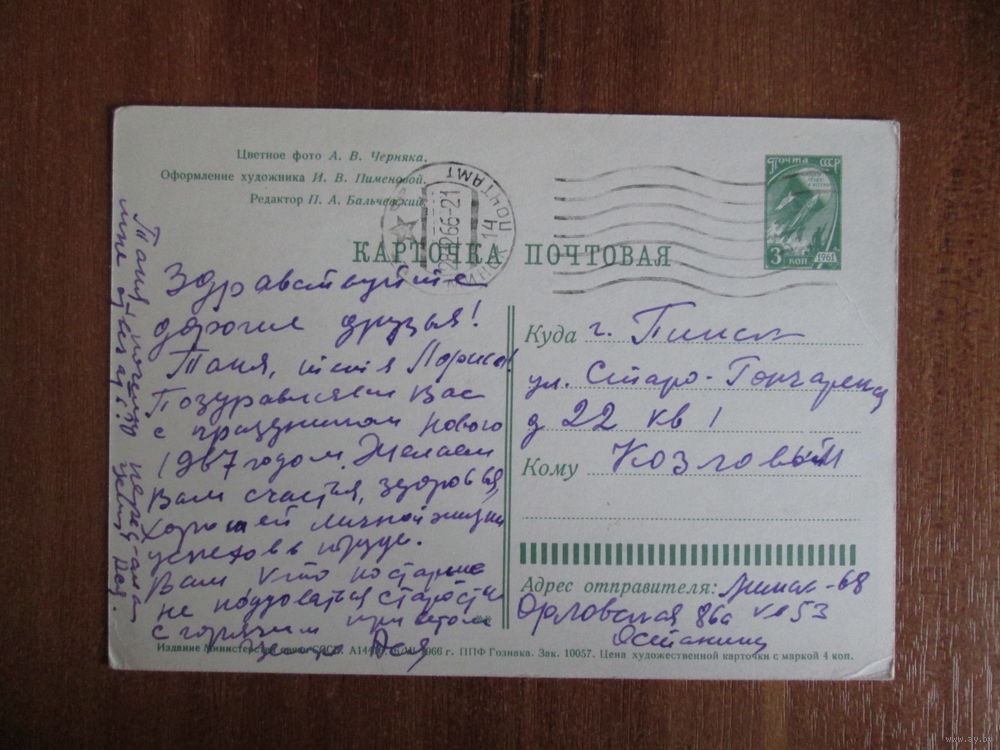 Цветное фото А. В. Черняка.
Оформление художника И. В. Пименовой.
Редактор П. А. Бальчевский
ПОЧТАМТ
14
281066-21
Почта СССР
3 коп
1961
КАРТОЧКА ПОЧТОВАЯ
Здравствуйте
дорогие друзья!
Таня, тётя Лориса!
Поздравляем Вас
с праздником нового
1967 годом. Желаем
Вам счастья, здоровья,
хорошей личной жизни
успехов в труде.
Вам что постарше
не поддоваться старости
с горячим приветом
Ася
Таня почему
мне
Ася.
Куда г. Пинск
ул. Старо-Гончарена
д 22 кв 1
Кому Козловым
Адрес отправителя: -68
Орловская 86а кв 53
Останину
Издание Министерства связи СССР. 1966 г. ППФ Гознака. Зак. 10057. Цена художественной карточки с маркой 4 коп.
www.ay.by